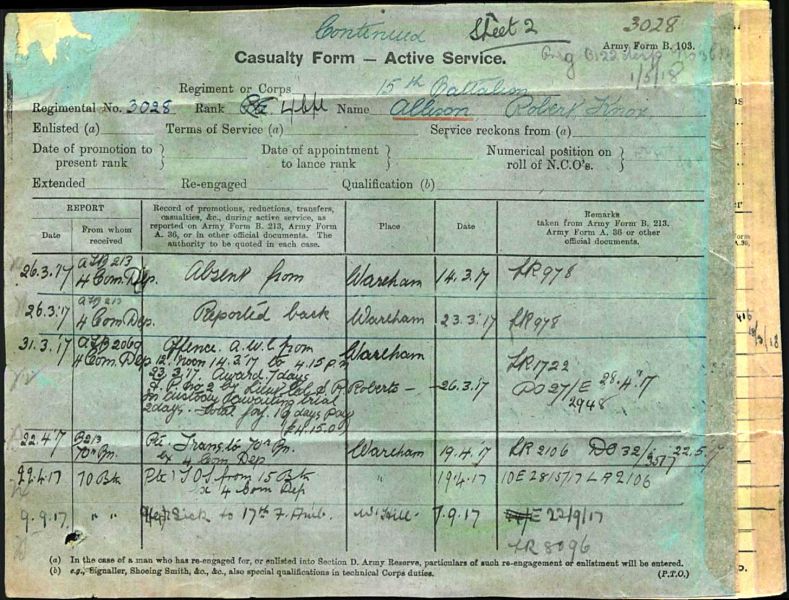 Continued Sheet 2 3028
Army Form B. 103.
Casualty Form — Active Service.
1/5/18
Regiment or Corps 15th Battalion
Regimental No. 3028 Rank Name Allison Robert Knox
Enlisted (a) Terms of Service (a) Service reckons from (a)
Date of promotion to present rank } Date of appointment to lance rank } Numerical position on roll of N.C.O's. }
Extended Re-engaged Qualification (b)
REPORT
Date
From whom received
Record of promotions, reductions, transfers, casualties, &c., during active service, as reported on Army Form B. 213, Army Form A. 36, or in other official documents. The authority to be quoted in each case.
Place
Date
Remarks taken from Army Form B. 213, Army Form A. 36 or other official documents.
26.3.'17 AFB 213 4 Com. Dep. Absent from Wareham 14.3.'17 LR 978
26.3.'17 AFB 213 4 Com Dep. Reported back Wareham 23.3.'17 LR 978
31.3.'17 AFB 2069 4 Com Dep. Offence. A.W.L. from Wareham
12 noon 14.3.'17 to 4.15 pm LR 1722
23.3.'17. Award 7 days
F.P. No 2 by Lieut Col S. R. Roberts — 26.3.'17 DO 37/E 2948 28.4.'17
In custody awaiting trial
2 days. Total forf. 19 days pay
22.4.'17 B213 70th Bn. Pte. Trans. to 70th Bn. Wareham 19.4.'17 LR 2106 DO 32/ 22.5.17
4 Com Dep
22.4.17 70 Btn Pte TOS from 15 Btn " 19.4.17 LR 2106
4 Com Dep
9.9.17 " " Sick to 17th F. Amb. W. Hill 7.9.17 E 22/9/17
LR 8096
(a) In the case of a man who has re-engaged for, or enlisted into Section D. Army Reserve, particulars of such re-engagement or enlistment will be entered.
(b) e.g., Signaller, Shoeing Smith, &c., &c., also special qualifications in technical Corps duties. (P.T.O.)